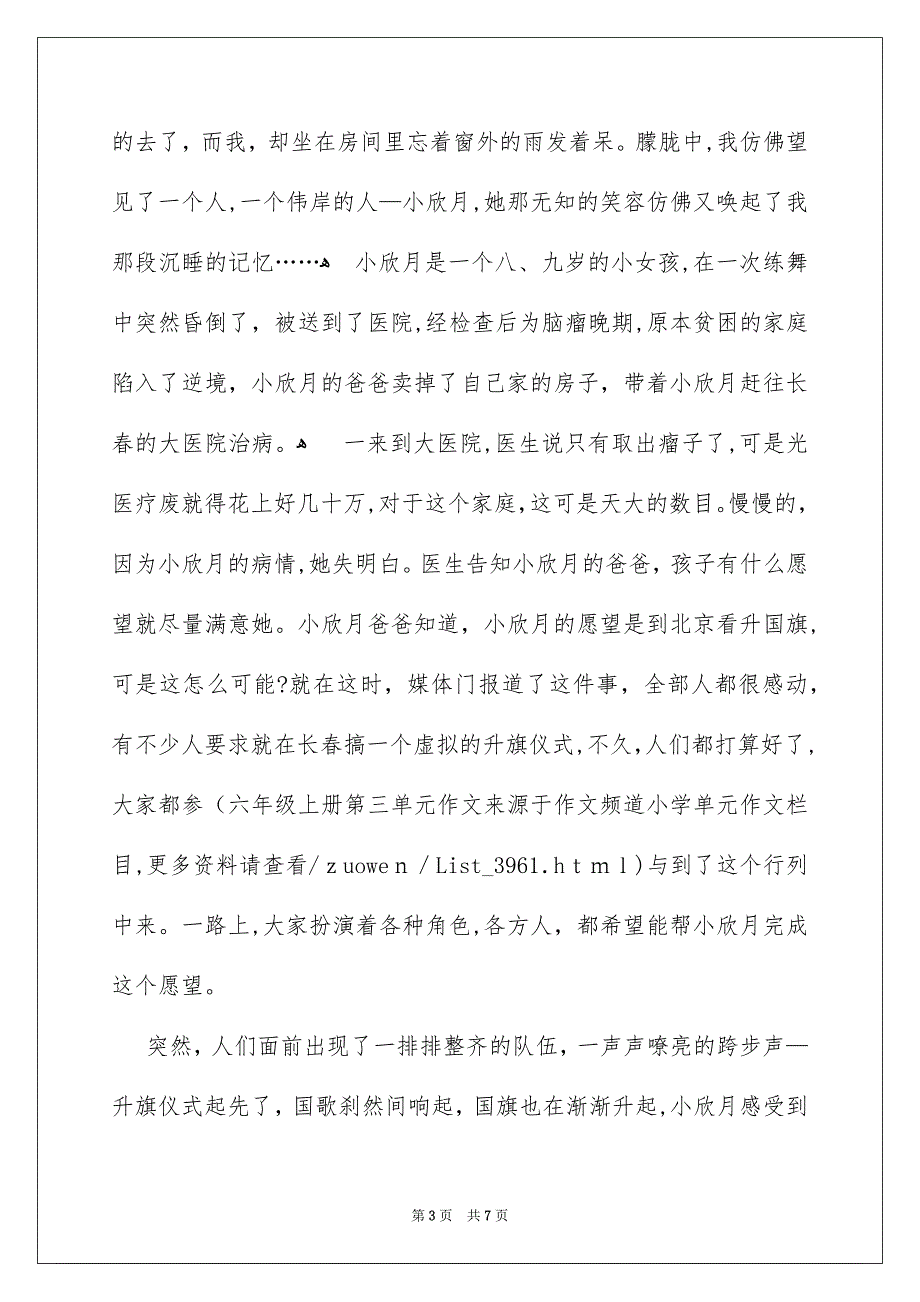 的去了，而我，却坐在房间里忘着窗外的雨发着呆。朦胧中,我仿佛望
见了一个人,一个伟岸的人—小欣月,她那无知的笑容仿佛又唤起了我
那段沉睡的记忆……ﻫ　小欣月是一个八、九岁的小女孩,在一次练舞
中突然昏倒了，被送到了医院,经检查后为脑瘤晚期,原本贫困的家庭
陷入了逆境，小欣月的爸爸卖掉了自己家的房子，带着小欣月赶往长
春的大医院治病。ﻫ　一来到大医院,医生说只有取出瘤子了,可是光
医疗废就得花上好几十万,对于这个家庭,这可是天大的数目。慢慢的，
因为小欣月的病情,她失明白。医生告知小欣月的爸爸，孩子有什么愿
望就尽量满意她。小欣月爸爸知道，小欣月的愿望是到北京看升国旗,
可是这怎么可能?就在这时，媒体门报道了这件事，全部人都很感动,
有不少人要求就在长春搞一个虚拟的升旗仪式,不久,人们都打算好了,
大家都参（六年级上册第三单元作文来源于作文频道小学单元作文栏
目,更多资料请查看/ｚuoweｎ/List_3961.hｔｍl)与到了这个行列
中来。一路上,大家扮演着各种角色,各方人，都希望能帮小欣月完成
这个愿望。
突然，人们面前出现了一排排整齐的队伍，一声声嘹亮的跨步声—
升旗仪式起先了，国歌刹然间响起，国旗也在渐渐升起,小欣月感受到
第 3 页 共 7 页